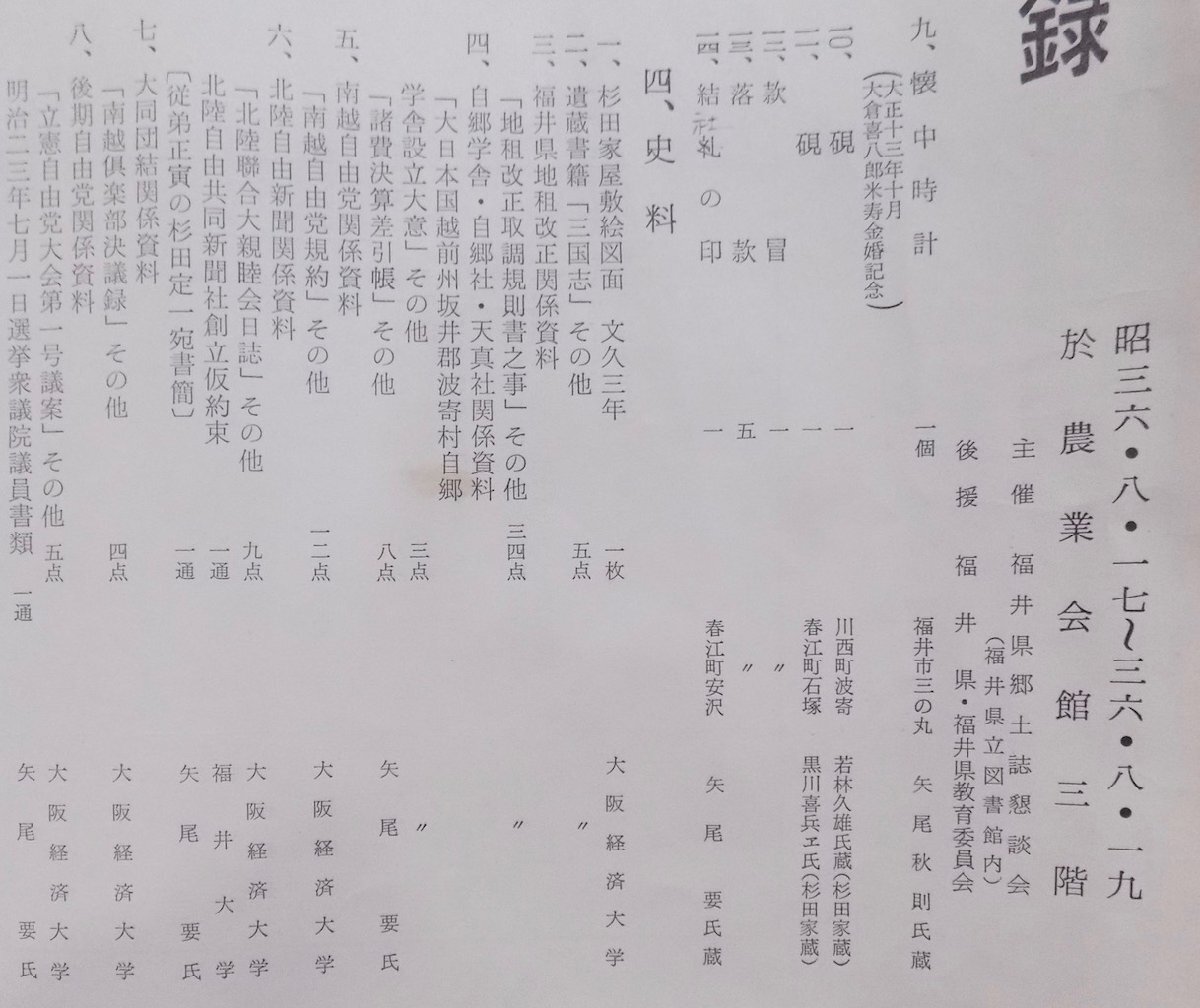 録
昭三六・八・一七~三六・八・一九
於農業会館三階
主催 福井県郷土誌懇談会
(福井県立図書館内)
後援 福井県・福井県教育委員会
九、懐中時計 一個 福井市三の丸 矢尾秋則氏蔵
(大正十三年十月
大倉喜八郎米寿金婚記念)
一〇、硯 一 川西町波寄 若林久雄氏蔵(杉田家蔵)
一一、硯 一 春江町石塚 黒川喜兵ヱ氏(杉田家蔵)
一二、款冒 一 〃
一三、落款 五 〃
一四、結社札の印 一 春江町安沢 矢尾要氏蔵
四、史料
一、杉田家屋敷絵図面 文久三年 一枚 大阪経済大学
二、遺蔵書籍「三国志」その他 五点 〃
三、福井県地租改正関係資料
「地租改正取調規則書之事」その他 三四点 〃
四、自郷学舎・自郷社・天真社関係資料
「大日本国越前州坂井郡波寄村自郷
学舎設立大意」その他 三点 〃
「諸費決算差引帳」その他 八点 矢尾要氏
五、南越自由党関係資料
「南越自由党規約」その他 一二点 大阪経済大学
六、北陸自由新聞関係資料
「北陸聯合大親睦会日誌」その他 九点 大阪経済大学
北陸自由共同新聞社創立仮約束 一通 福井大学
〔従弟正寅の杉田定一宛書簡〕 一通 矢尾要氏
七、大同団結関係資料
「南越俱楽部決議録」その他 四点 大阪経済大学
八、後期自由党関係資料
「立憲自由党大会第一号議案」その他 五点 大阪経済大学
明治二三年七月一日選挙衆議院議員書類 一通 矢尾要氏